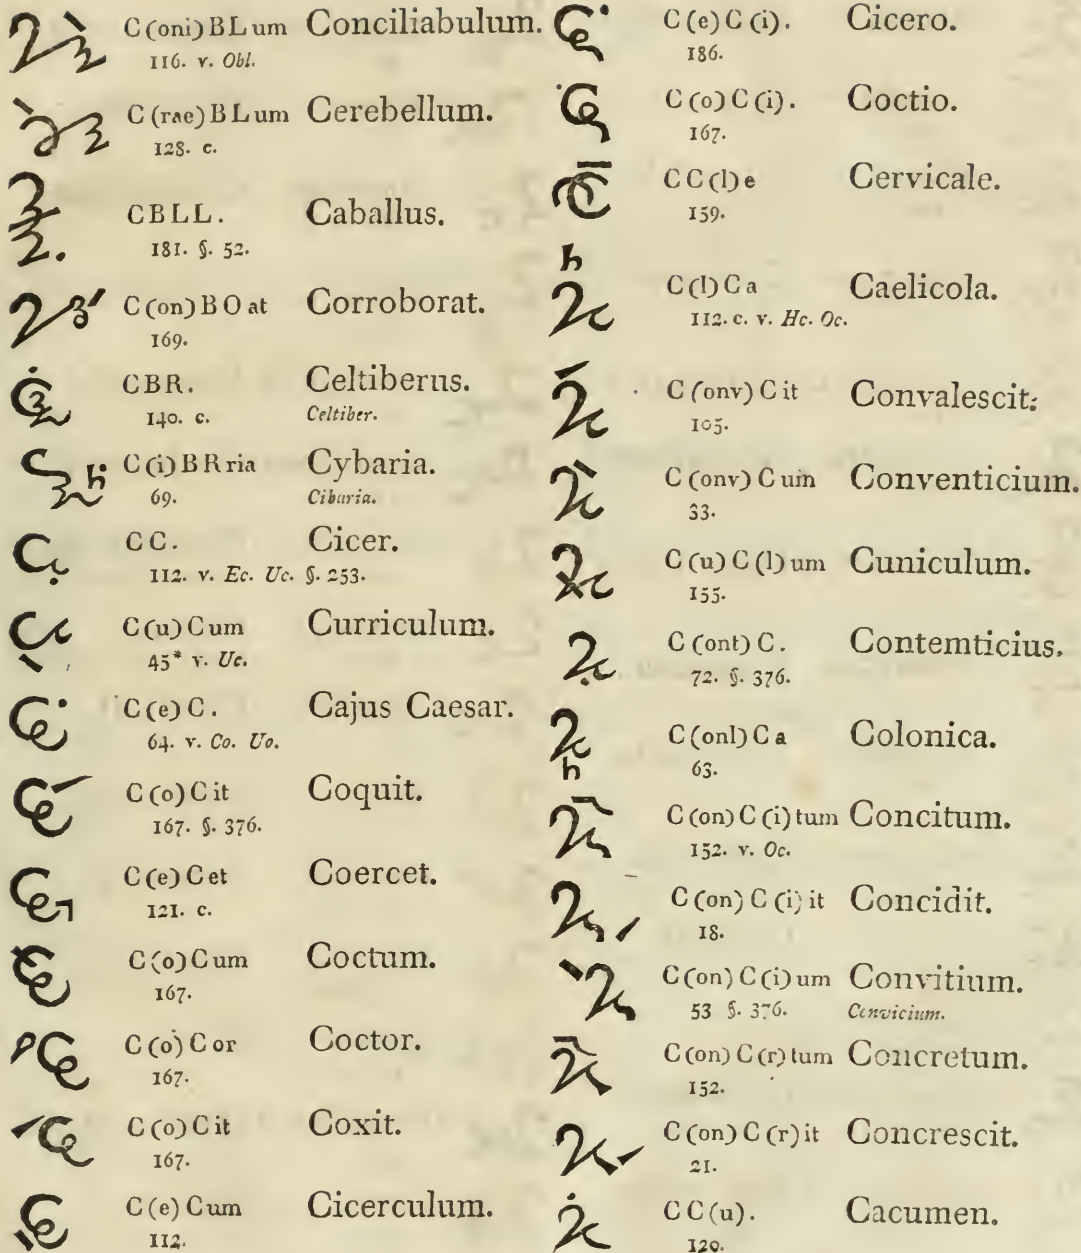 C (oni) B L um Conciliabulum.
116. v. Obl.
C (rae) B L um Cerebellum.
128. c.
C B L L. Caballus.
181. §. 52.
C (on) B O at Corroborat.
169.
C B R. Celtiberus.
140. c. Celtiber.
C (i) B R ria Cybaria.
69. Cibaria.
C C. Cicer.
112. v. Ec. Uc. §. 253.
C (u) C um Curriculum.
45* v. Uc.
C (e) C. Cajus Caesar.
64. v. Co. Uo.
C (o) C it Coquit.
167. §. 376.
C (e) C et Coercet.
121. c.
C (o) C um Coctum.
167.
C (o) C or Coctor.
167.
C (o) C it Coxit.
167.
C (e) C um Cicerculum.
112.
C (e) C (i). Cicero.
186.
C (o) C (i). Coctio.
167.
C C (l) e Cervicale.
159.
C (l) C a Caelicola.
112. c. v. Hc. Oc.
C (onv) C it Convalescit.
105.
C (onv) C um Conventicium.
33.
C (u) C (l) um Cuniculum.
155.
C (ont) C. Contemticius.
72. §. 376.
C (onl) C a Colonica.
63.
C (on) C (i) tum Concitum.
152. v. Oc.
C (on) C (i) it Concidit.
18.
C (on) C (i) um Convitium.
53 §. 376. Convicium.
C (on) C (r) tum Concretum.
152.
C (on) C (r) it Concrescit.
21.
C C (u). Cacumen.
120.